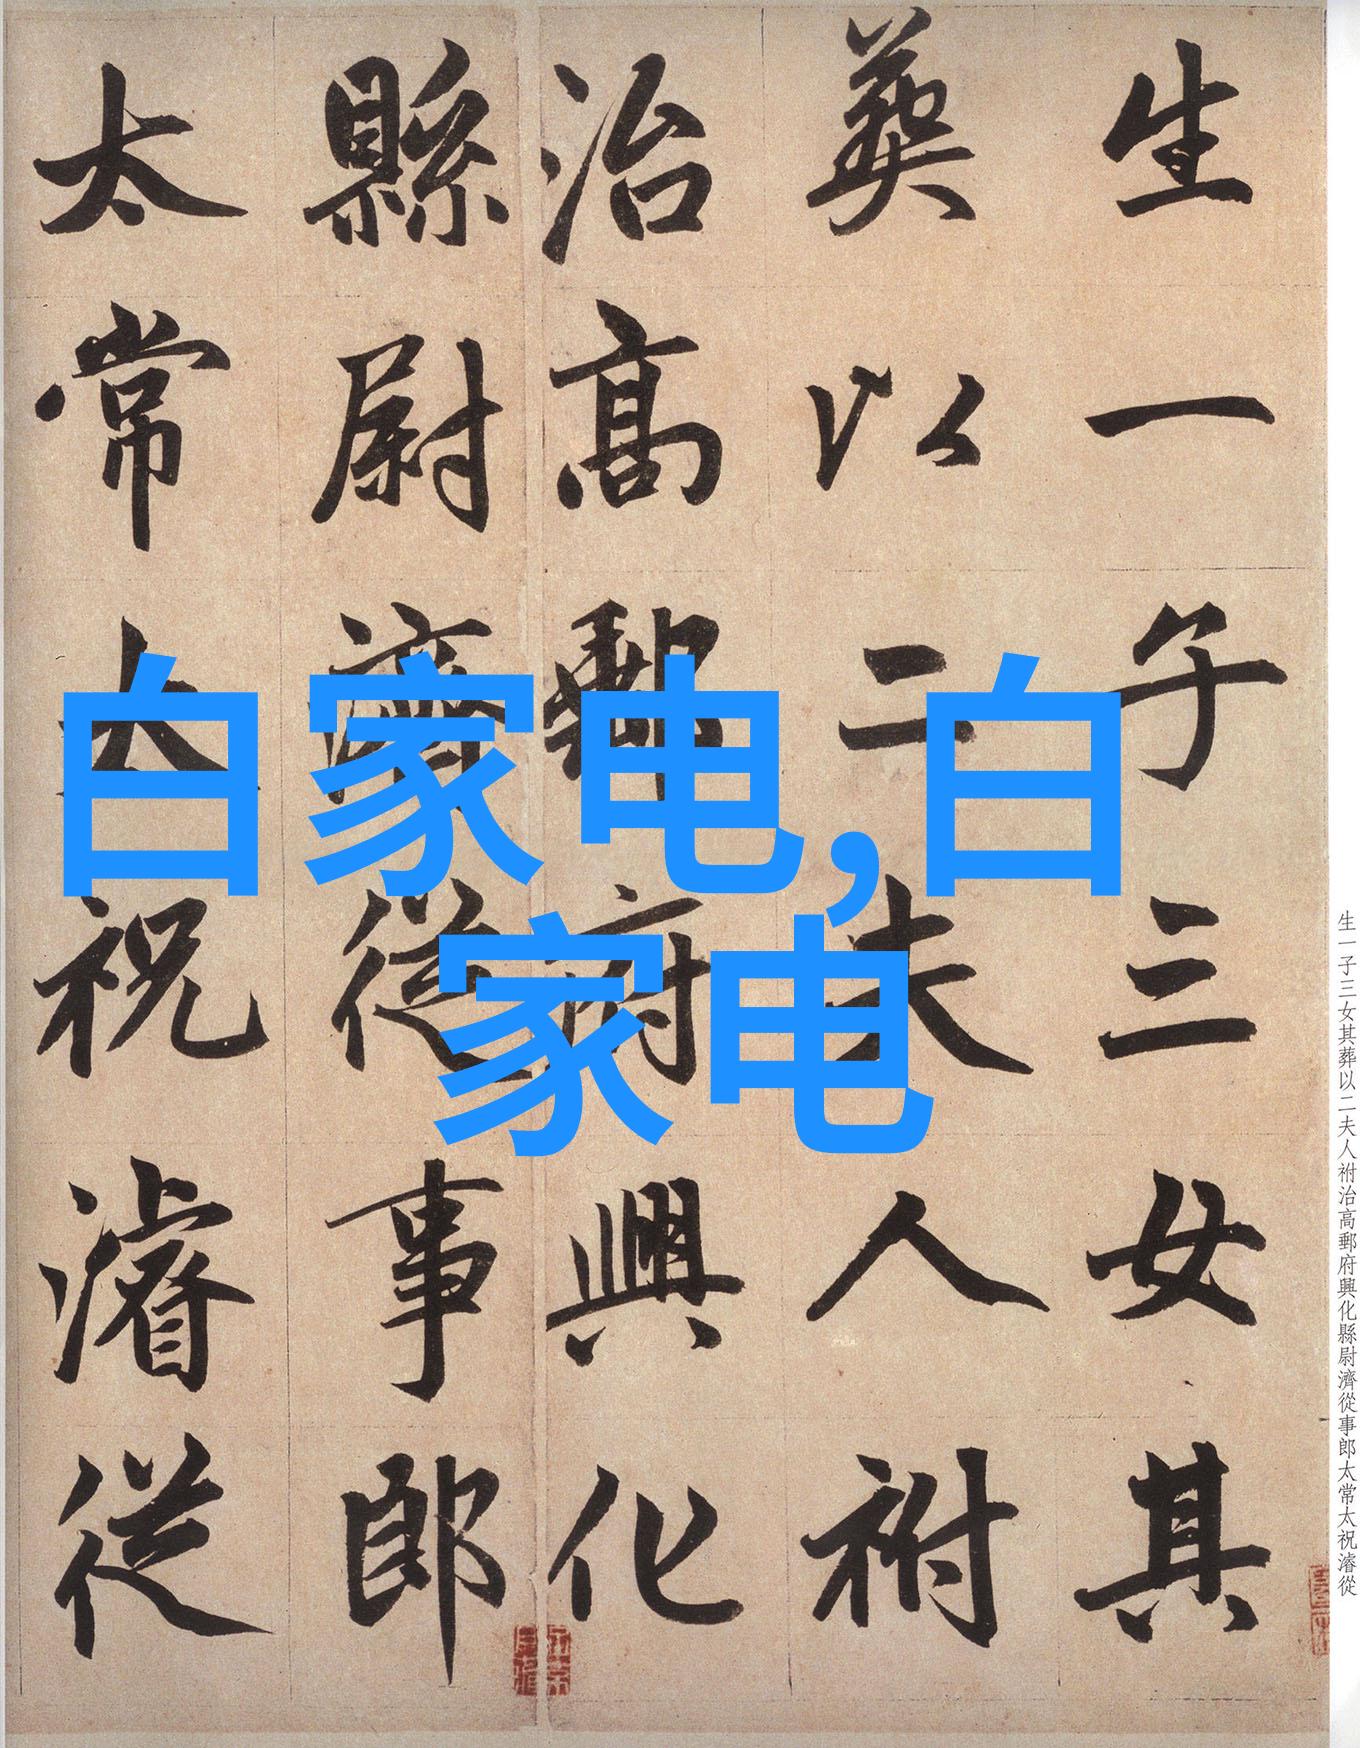 生一子三女其
葬以二夫人祔
治高郵府興化
縣尉濟從事郎
太常太祝濬從
白家电,白
家电
生一子三女其葬以二夫人祔治高郵府興化縣尉濟從事郎太常太祝濬從